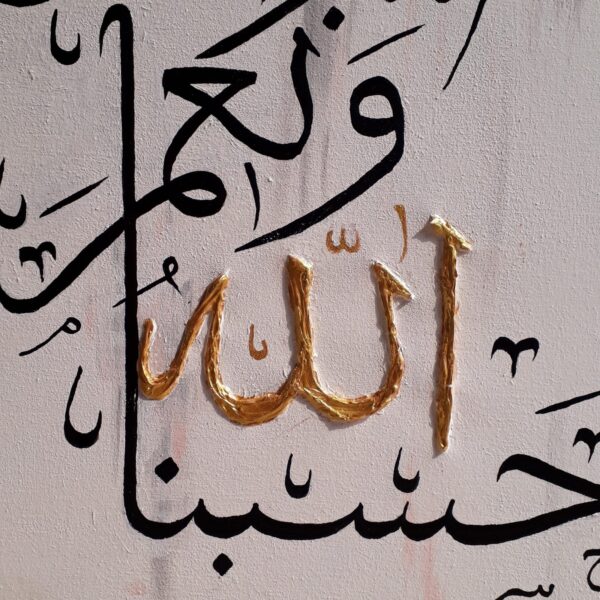 حسبنا
الله
ونعم